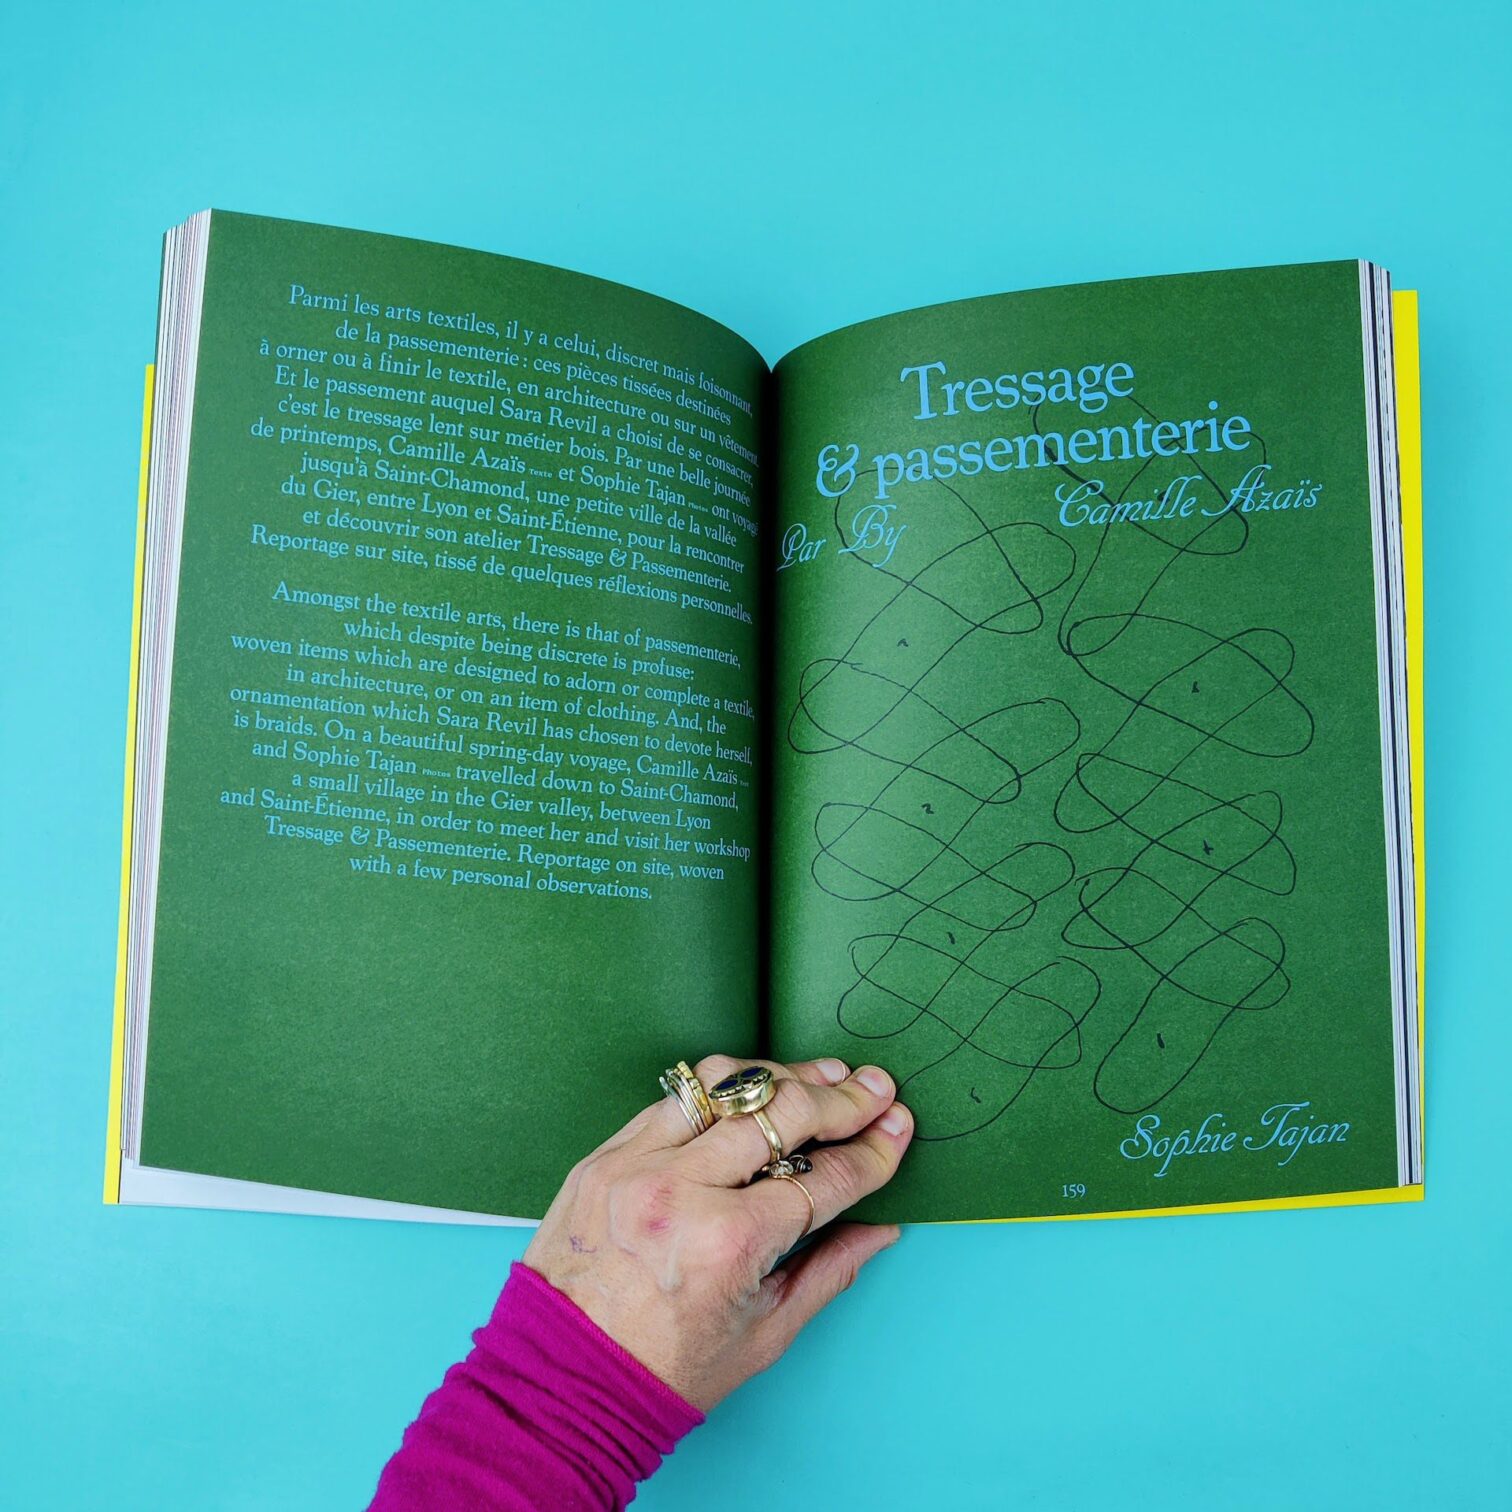 Parmi les arts textiles, il y a celui, discret mais foisonnant,
de la passementerie : ces pièces tissées destinées
à orner ou à finir le textile, en architecture ou sur un vêtement.
Et le passement auquel Sara Revil a choisi de se consacrer,
c'est le tressage lent sur métier bois. Par une belle journée
de printemps, Camille Azaïs Texte et Sophie Tajan Photos ont voyagé
jusqu'à Saint-Chamond, une petite ville de la vallée
du Gier, entre Lyon et Saint-Étienne, pour la rencontrer
et découvrir son atelier Tressage & Passementerie.
Reportage sur site, tissé de quelques réflexions personnelles.
Amongst the textile arts, there is that of passementerie,
which despite being discrete is profuse:
woven items which are designed to adorn or complete a textile,
in architecture, or on an item of clothing. And, the
ornamentation which Sara Revil has chosen to devote herself,
is braids. On a beautiful spring-day voyage, Camille Azaïs Text
and Sophie Tajan Photos travelled down to Saint-Chamond,
a small village in the Gier valley, between Lyon
and Saint-Étienne, in order to meet her and visit her workshop
Tressage & Passementerie. Reportage on site, woven
with a few personal observations.
Tressage
& passementerie
Par By Camille Azaïs
2
Sophie Tajan
159